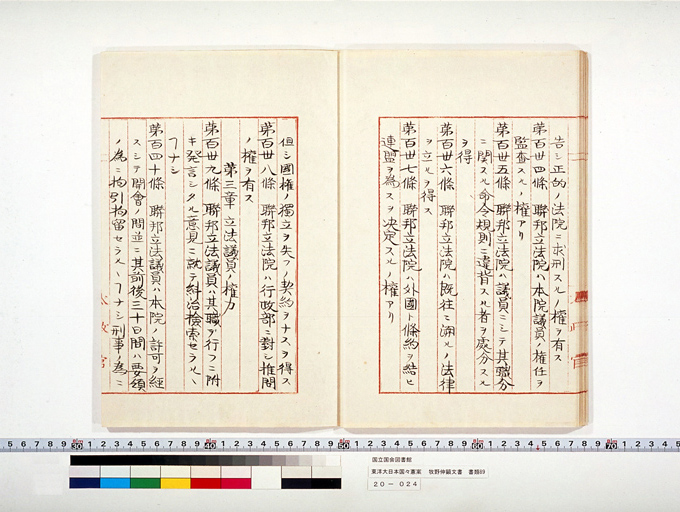 告シ正的ノ法院ニ求刑スルノ權ヲ有ス
第百卅四條 聯邦立法院ハ本院議員ノ權任ヲ
監査スルノ權アリ
第百卅五條 聯邦立法院ハ議員ニシテ其職分
ニ関スル命令規則ニ違背スル者ヲ處分スル
ヲ得
第百卅六條 聯邦立法院ハ既往ニ溯ルノ法律
ヲ立ルヲ得ス
第百卅七條 聯邦立法院ハ外國ト條約ヲ結ヒ
連盟ヲ為スヲ決定スルノ權アリ
但シ國權ノ獨立ヲ失フノ契約ヲナスヲ得ス
第百卅八條 聯邦立法院ハ行政部ニ對シ推問
ノ權ヲ有ス
第三章 立法議員ノ權力
第百卅九條 聯邦立法議員ハ其職ヲ行フニ附
キ發言シタル意見ニ就テ糾治檢索セラルヽ
ヿナシ
第百四十條 聯邦立法議員ハ本院ノ許可ヲ經
スシテ開會ノ間並ニ其前後三十日間ハ要領
ノ為ニ拘引拘留セラルヽヿナシ刑事ノ為ニ
太政官
5 6 7 8 9 30 1 2 3 4 5 6 7 8 9 40 1 2 3 4 5 6 7 8 9 50 1 2 3 4 5 6 7 8 9 60 1 2 3 4 5 6 7 8 9 70 1 2 3 4 5
国立国会図書館
東洋大日本国々憲案 牧野伸顕文書 書類69
20－024